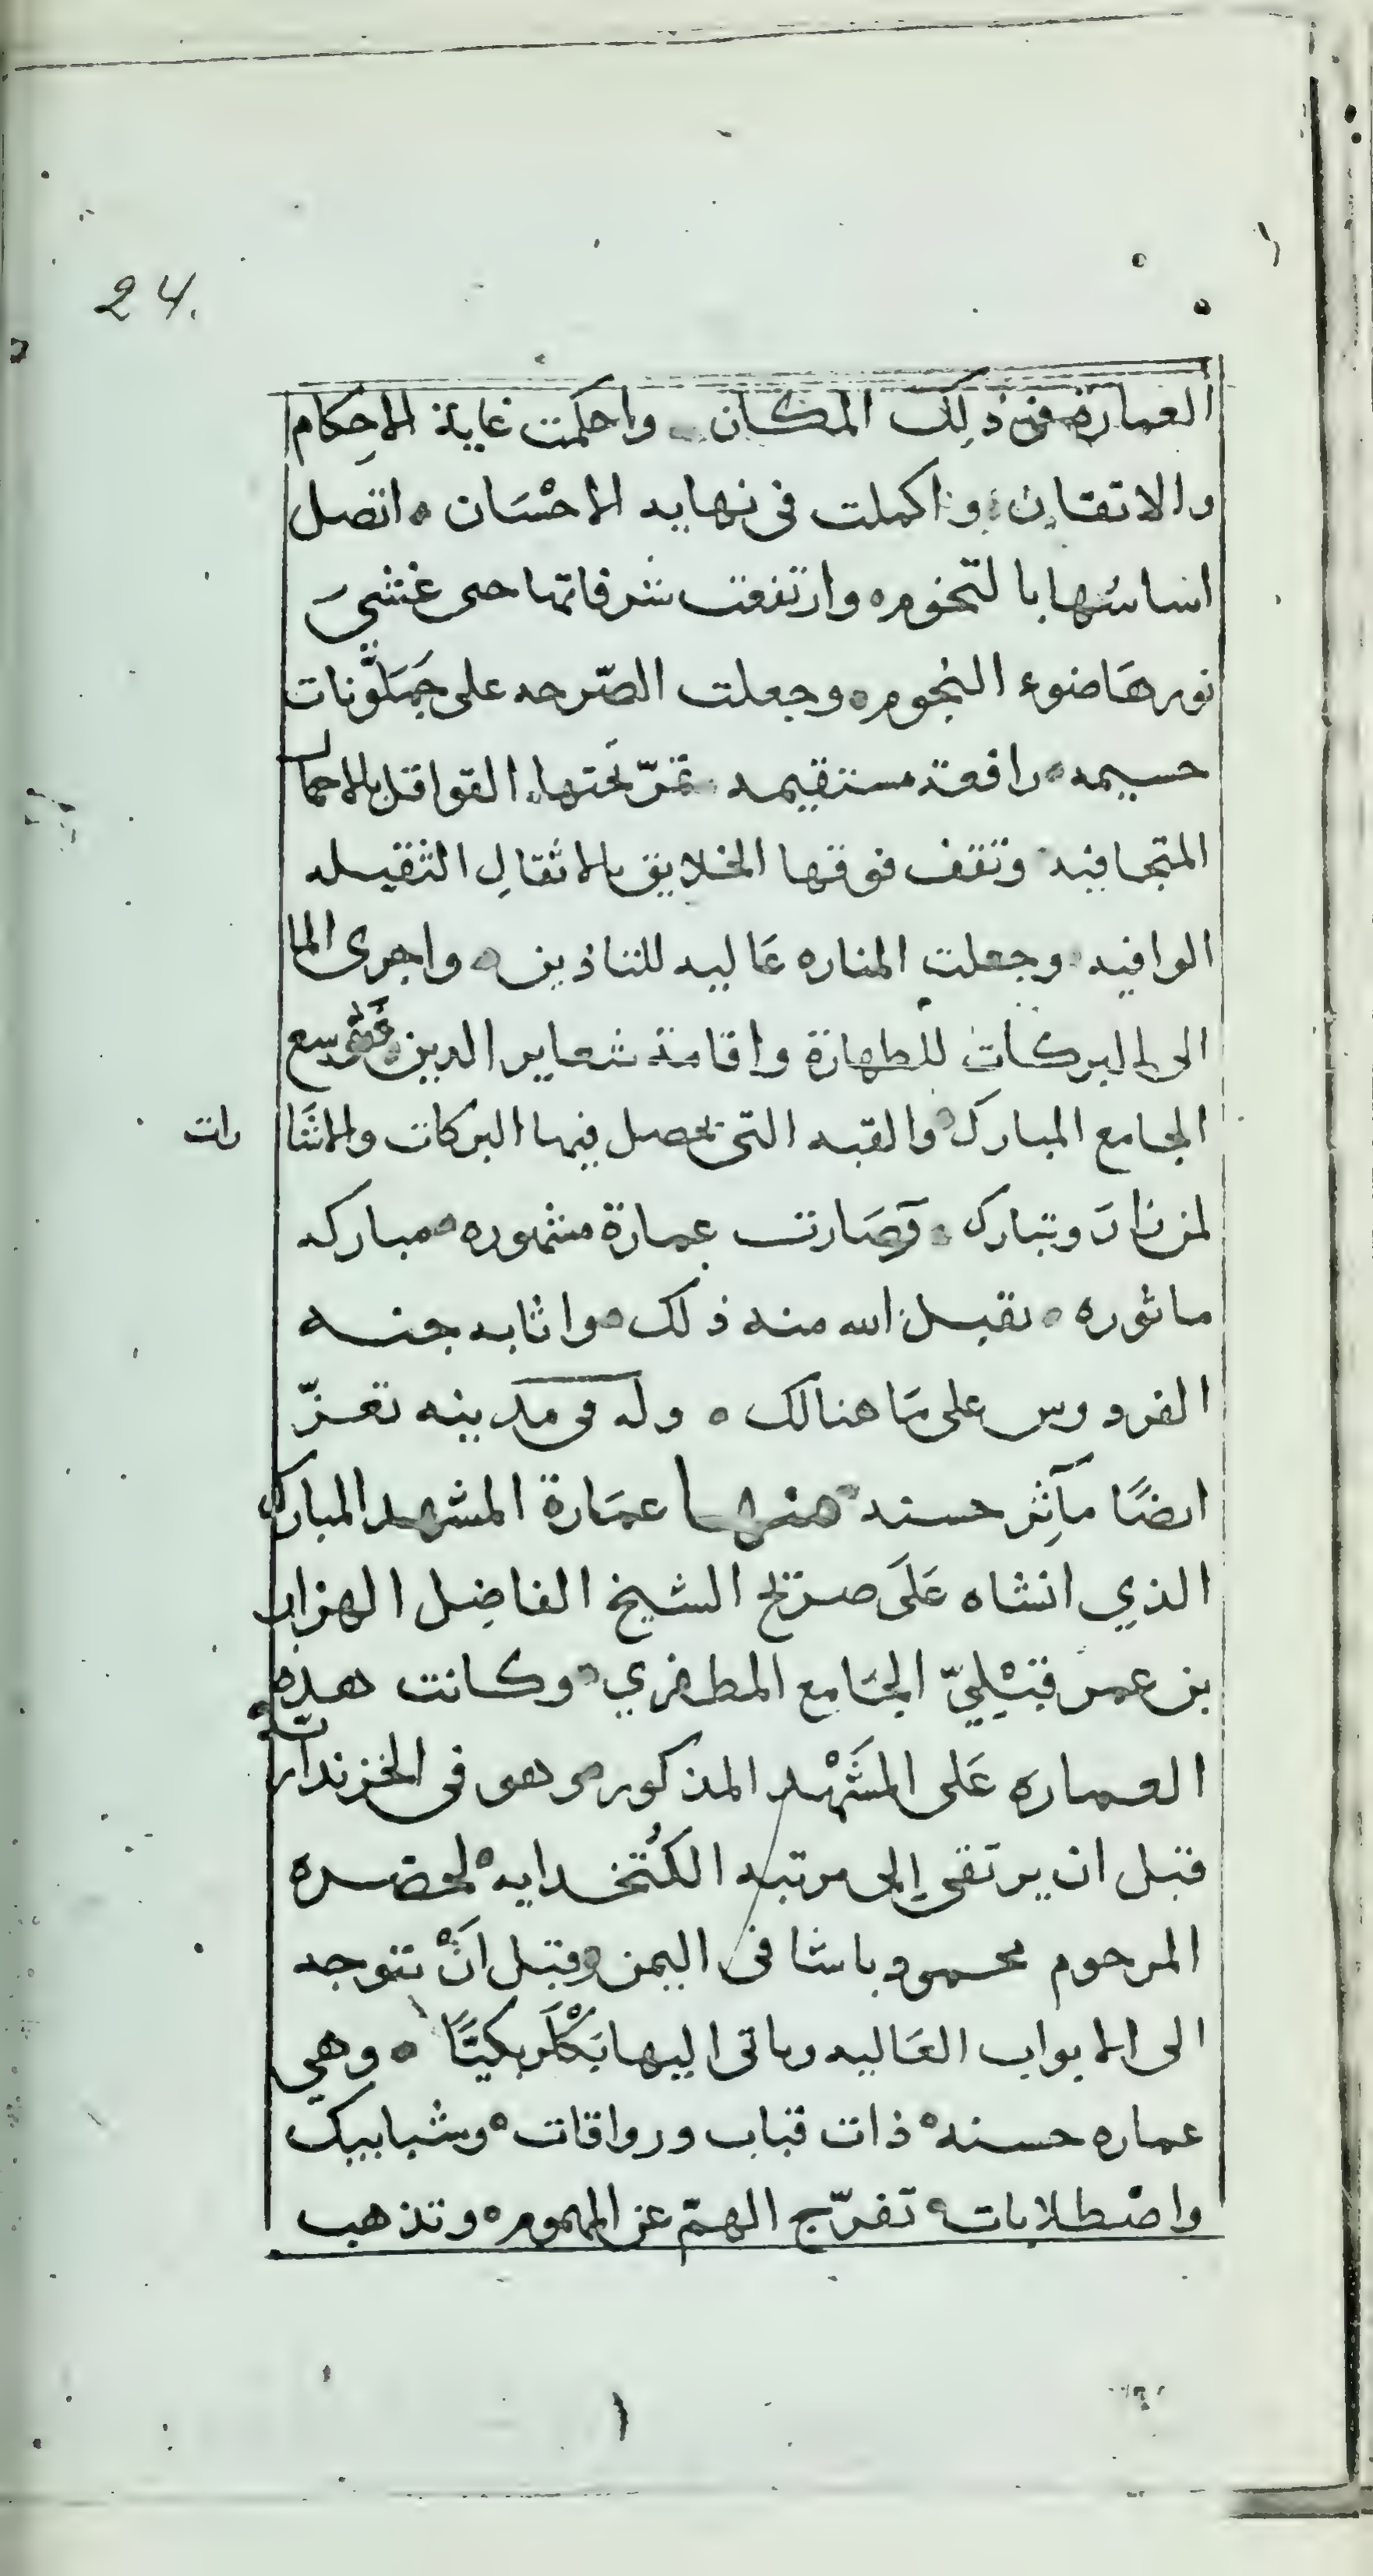 24.
العمارة في ذلك المكان ، واحكمت غاية الاحكام
والاتقان ، واكملت في نهايه الاحْسَان ، اتصل
اساسُها بالتخوم ، وارتفعت شرفاتها حتى غشيَ
نورهَا ضوء النجوم ، وجعلت الصّرحه على جَمَلّونات
جسيمه ، رافعة مستقيمه ، تمرّ تحتها القوافل بالاحمال
المتجافيه وتقف فوقها الخلايق بالاثقالِ الثقيله
الوافيه ، وجعلت المناره عَاليه للتاذين ، واجرى الما
الى البركات للطهارة واقامة شعاير الدين ، وسع
الجامع المبارك والقبه التي يحصل فيها البركات والاشَارات
لمن زارَ وتبارك ، فصَارت عمارة مشهوره ، مباركه
ماثوره ، تقبل الله منه ذلك ، واثابه جنه
الفردوس على مَا هنالك ، وله في مدينه تعزّ
ايضًا مآثِر حسنه منها عمَارة المشهد المبارك
الذي انشاه عَلَى ضريح الشيخ الفاضِل الهزاب
بن عمر قِبْلِيّ الجَامع المظفري ، وكانت هذه
العماره عَلى المشَهْد المذكور وهو في الخزندارية
قبل ان يرتقى إلى مرتبه الكُتخدايه لحضره
المرحوم محمود باشا في اليمن وقبل اَنْ تتوجه
الى الابواب العَاليه وياتى اليها بَكْلَربكيًّا ، وهي
عماره حسنه ذات قباب ورواقات ، وشبابيك
واضْطلابات تفرّج الهمّ عن المهموم ، وتذهب